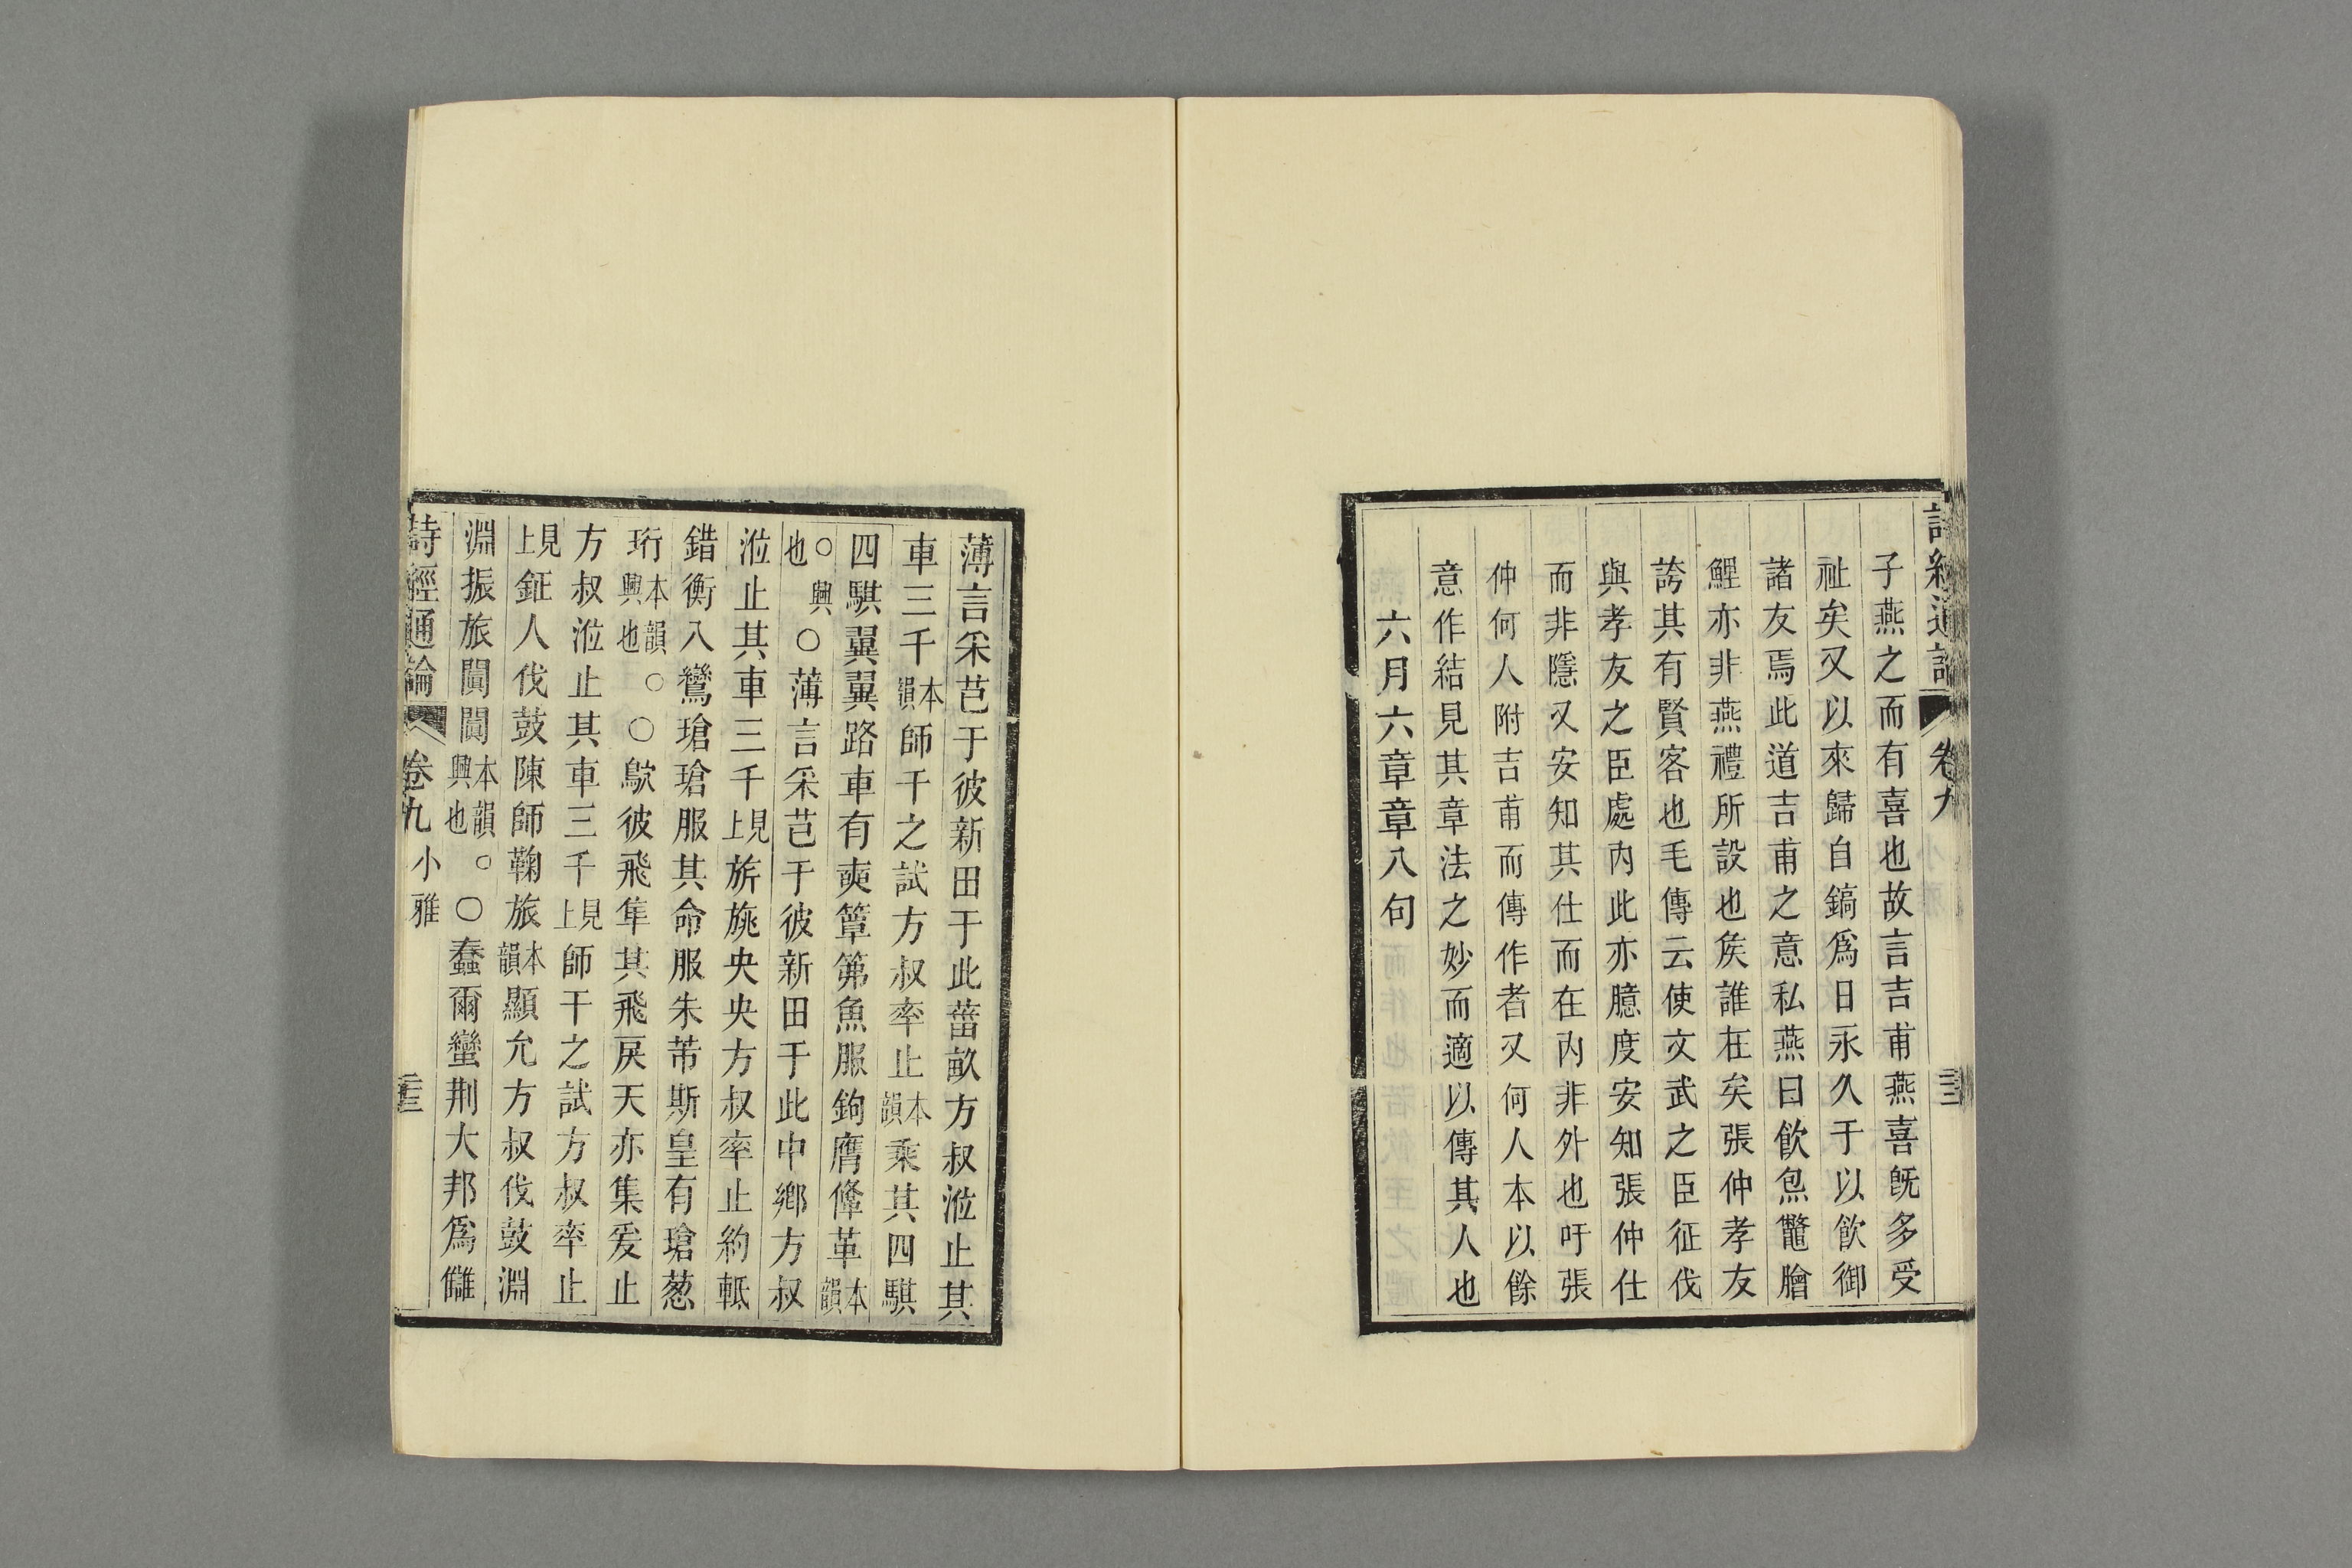 詩經通論 卷九
子燕之而有喜也故言吉甫燕喜旣多受
祉矣又以來歸自鎬爲日永久于以飮御
諸友焉此道吉甫之意私燕曰飮炰鼈膾
鯉亦非燕禮所設也矦誰在矣張仲孝友
誇其有賢客也毛傳云使文武之臣征伐
與孝友之臣處內此亦臆度安知張仲仕
而非隱又安知其仕而在內非外也吁張
仲何人附吉甫而傳作者又何人本以餘
意作結見其章法之妙而適以傳其人也
六月六章章八句
薄言采芑于彼新田于此菑畝方叔涖止其
車三千本韻師干之試方叔率止本韻乘其四騏
四騏翼翼路車有奭簟笰魚服鉤膺鞗革本韻
○興也○薄言采芑于彼新田于此中鄕方叔
涖止其車三千見上旂旐央央方叔率止約軧
錯衡八鸞瑲瑲服其命服朱芾斯皇有瑲葱
珩本韻○興也○鴥彼飛隼其飛戾天亦集爰止
方叔涖止其車三千見上師干之試方叔率止
見上鉦人伐鼓陳師鞠旅本韻顯允方叔伐鼓淵
淵振旅闐闐本韻○興也○蠢爾蠻荆大邦爲讎
詩經通論 卷九 小雅